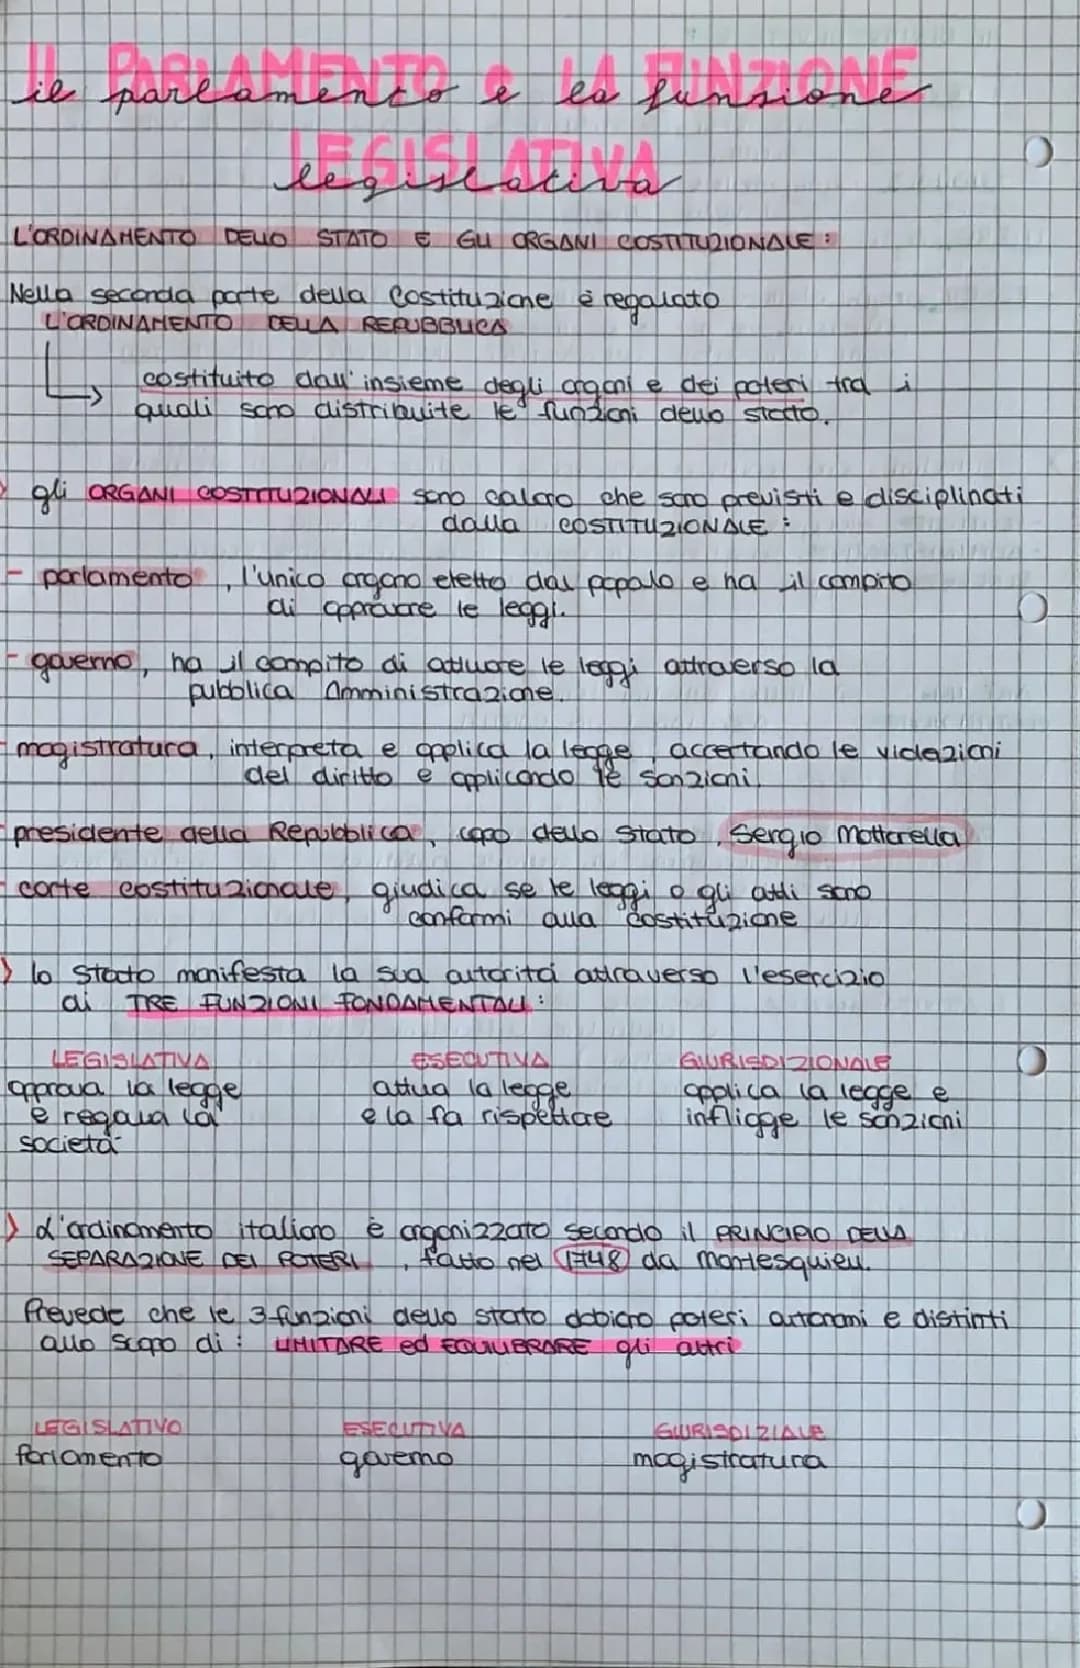 il PARLAMENTO e LA FUNZIONE
LEGISLATIVA
L'ORDINAMENTO DELLO STATO E GLI ORGANI COSTITUZIONALE:
Nella seconda parte della Costituzione è regalato
L'ORDINAMENTO DELLA REPUBBLICA
costituito dall'insieme degli organi e dei poteri tra i
quali sono distribuite le funzioni dello stato.
gli ORGANI COSTITUZIONALI sono coloro che sono previsti e disciplinati
dalla COSTITUZIONALE:
- parlamento, l'unico organo eletto dal popolo e ha il compito
di approvare le leggi.
- governo, ha il compito di attuare le leggi attraverso la
pubblica Amministrazione.
- magistratura, interpreta e applica la legge, accertando le violazioni
del diritto e applicando le sanzioni.
- presidente della Repubblica, capo dello Stato, Sergio Mattarella
- corte costituzionale, giudica se le leggi o gli atti sono
conformi alla costituzione
> lo stato manifesta la sua autorità attraverso l'esercizio
di TRE FUNZIONI FONDAMENTALI:
LEGISLATIVA ESECUTIVA GIURISDIZIONALE
approva la legge attua la legge applica la legge e
e regola la e la fa rispettare infligge le sanzioni
società
> L'ordinamento italiano è organizzato secondo il PRINCIPIO DELLA
SEPARAZIONE DEI POTERI, fatto nel 1748 da Montesquieu.
Prevede che le 3 funzioni dello stato abbiano poteri autonomi e distinti
allo scopo di: LIMITARE ed EQUILIBRARE gli altri
LEGISLATIVO ESECUTIVA GIURISDIZIALE
Parlamento governo magistratura